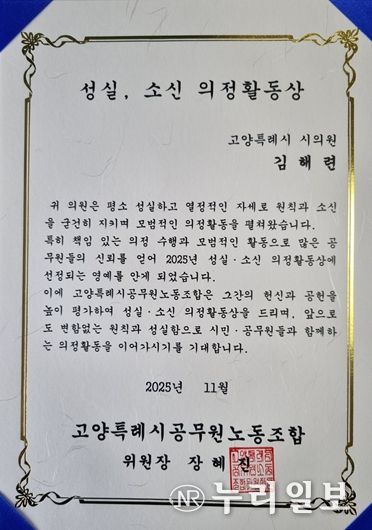 성실, 소신 의정활동상
고양특례시 시의원
김 해 련
귀 의원은 평소 성실하고 열정적인 자세로 원칙과 소신
을 굳건히 지키며 모범적인 의정활동을 펼쳐왔습니다.
특히 책임 있는 의정 수행과 모범적인 활동으로 많은 공
무원들의 신뢰를 얻어 2025년 성실·소신 의정활동상에
선정되는 영예를 안게 되었습니다.
이에 고양특례시공무원노동조합은 그간의 헌신과 공헌을
높이 평가하여 성실·소신 의정활동상을 드리며, 앞으로
도 변함없는 원칙과 성실함으로 시민·공무원들과 함께하
는 의정활동을 이어가시기를 기대합니다.
2025년 11월
고양특례시공무원노동조합
위원장 장 혜 진
NR 누리일보